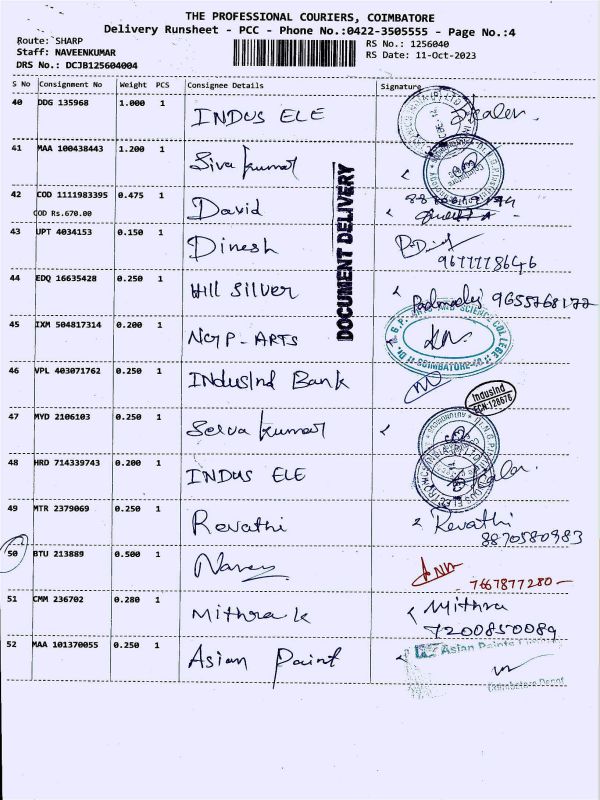 THE PROFESSIONAL COURIERS, COIMBATORE
Delivery Runsheet - PCC - Phone No.:0422-3505555 - Page No.:4
Route: SHARP
RS No.: 1256040
Staff: NAVEENKUMAR
RS Date: 11-Oct-2023
DRS No.: DCJB125604004
S No Consignment No Weight PCS Consignee Details Signature
40 DDG 135968 1.000 1 INDUS ELE
41 MAA 100438443 1.200 1 Siva kumar
42 COD 1111983395 0.475 1 David
COD Rs.670.00
43 UPT 4034153 0.150 1 Dinesh
9677778646
44 EDQ 16635428 0.250 1 Hill Silver 9655768172
DOCUMENT DELIVERY
45 IXM 504817314 0.200 1 NGP-ARTS
Dr. N.G.P. ARTS AND SCIENCE COLLEGE
COIMBATORE
46 VPL 403071762 0.250 1 IndusInd Bank
IndusInd
ECN:128676
47 MYD 2106103 0.250 1 Selva kumar
48 HRD 714339743 0.200 1 INDUS ELE
49 MTR 2379069 0.250 1 Revathi Revathi
8870580983
50 BTU 213889 0.500 1
7667877280
51 CMM 236702 0.280 1 Mithra k Mithra
7200850089
52 MAA 101370055 0.250 1 Asian Paint
Asian Paints
Coimbatore Depot